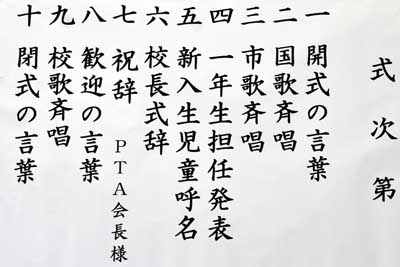 式次第
一 開式の言葉
二 国歌斉唱
三 市歌斉唱
四 一年生担任発表
五 新入生児童呼名
六 校長式辞
七 祝辞 PTA会長様
八 歓迎の言葉
九 校歌斉唱
十 閉式の言葉